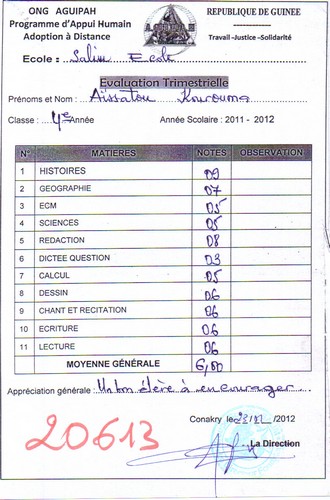 ONG AGUIPAH
Programme d'Appui Humain
Adoption à Distance
REPUBLIQUE DE GUINEE
Travail -Justice -Solidarité
Ecole : Salim Ecole
Evaluation Trimestrielle
Prénoms et Nom : Aïssatou Kourouma
Classe : 4e Année Année Scolaire : 2011 - 2012
N° MATIERES NOTES OBSERVATION
1 HISTOIRES 09
2 GEOGRAPHIE 07
3 ECM 05
4 SCIENCES 05
5 REDACTION 08
6 DICTEE QUESTION 03
7 CALCUL 05
8 DESSIN 06
9 CHANT ET RECITATION 06
10 ECRITURE 06
11 LECTURE 06
MOYENNE GÉNÉRALE 6,00
Appréciation générale : Un bon élève à encourager
Conakry le /2012
20613
La Direction